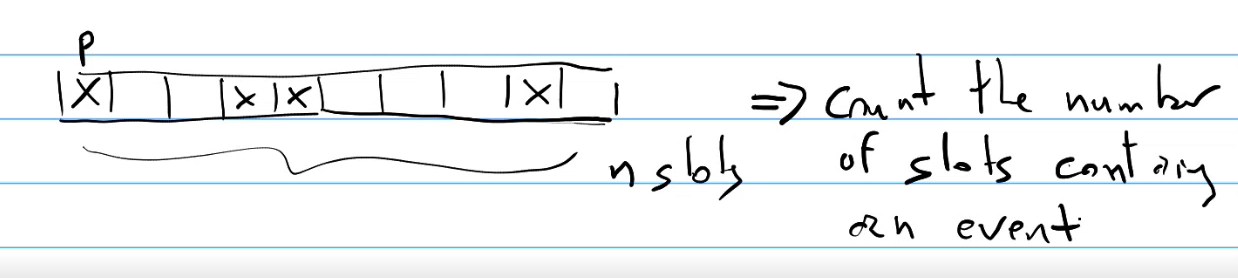 P
|X| | |X|X| | | |X| |
n slots
⇒ count the number
of slots containing
an event